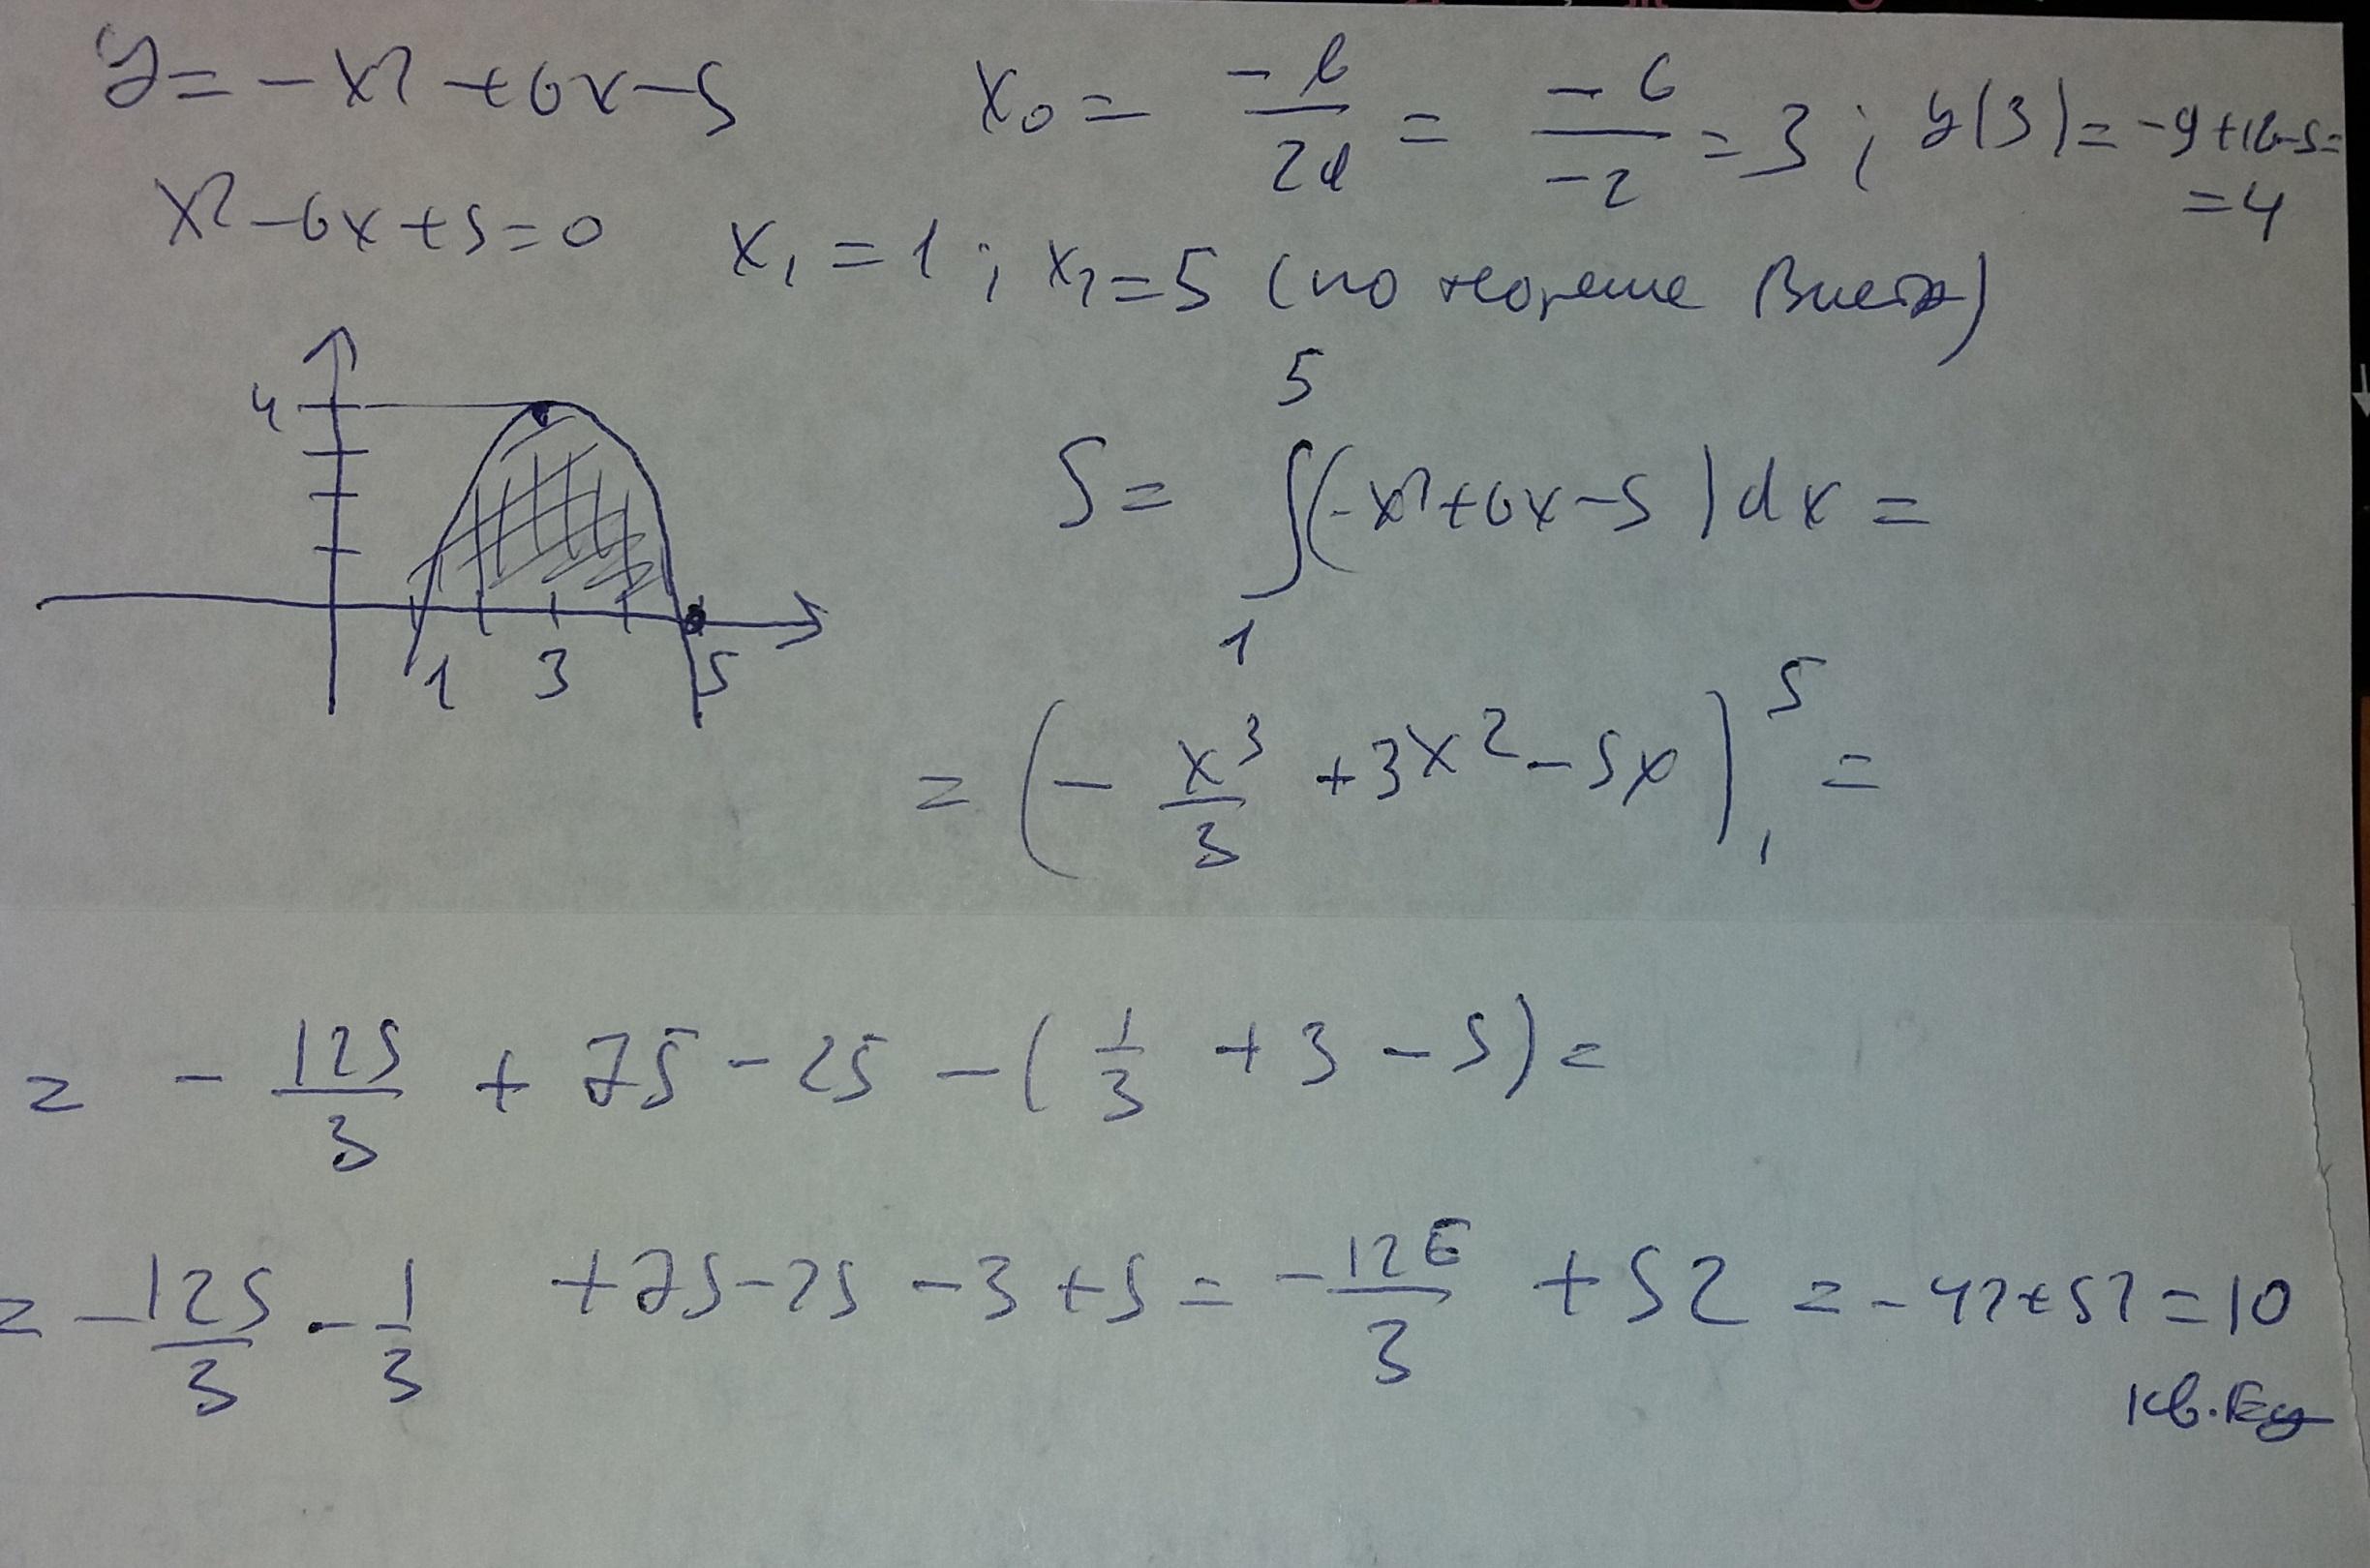 y = -x² + 6x - 5    x₀ = -b/2a = -6/-2 = 3 ; y(3) = -9+18-5 =
= 4
x² - 6x + 5 = 0    x₁ = 1 ; x₂ = 5 (по теореме Виета)
4
1 3 5
S = ∫₁⁵ (-x² + 6x - 5) dx =
= (- x³/3 + 3x² - 5x)₁⁵ =
= - 125/3 + 75 - 25 - (1/3 + 3 - 5) =
= - 125/3 - 1/3 + 75 - 25 - 3 + 5 = - 126/3 + 52 = - 42 + 52 = 10
кв. Ед